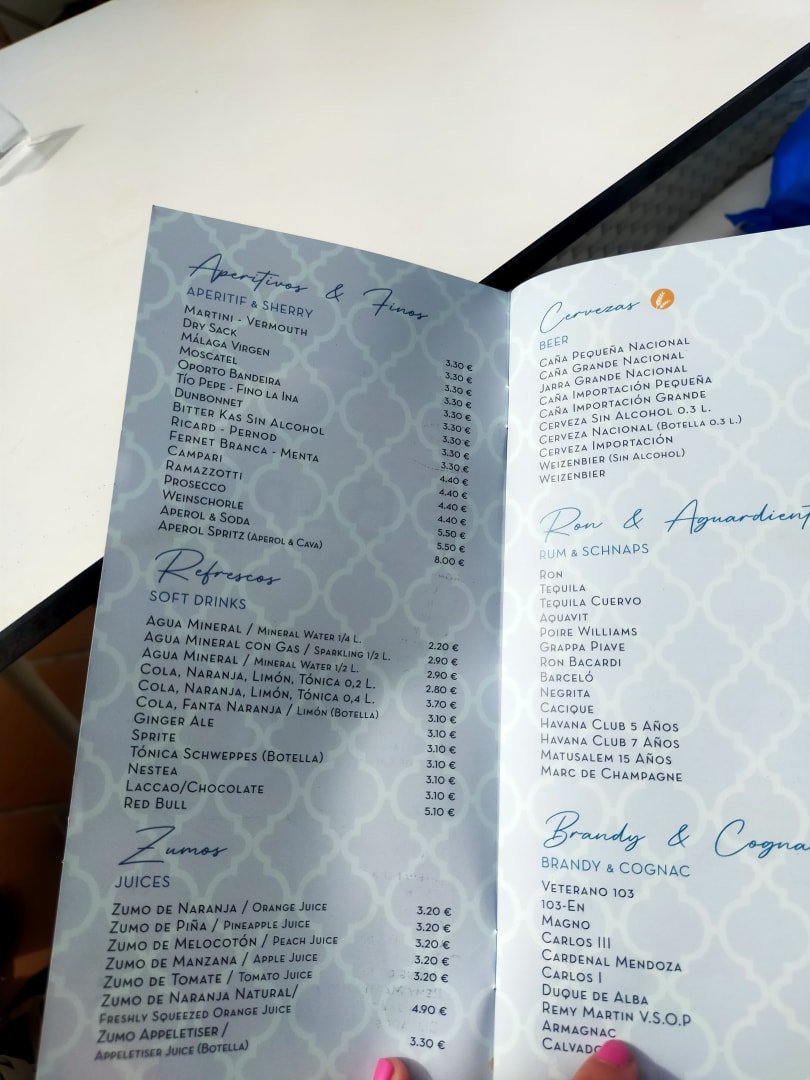 Aperitivos & Finos
APERITIF & SHERRY
MARTINI - VERMOUTH 3.30 €
DRY SACK 3.30 €
MÁLAGA VIRGEN 3.30 €
MOSCATEL 3.30 €
OPORTO BANDEIRA 3.30 €
TÍO PEPE - FINO LA INA 3.30 €
DUNBONNET 3.30 €
BITTER KAS SIN ALCOHOL 3.30 €
RICARD - PERNOD 3.30 €
FERNET BRANCA - MENTA 4.40 €
CAMPARI 4.40 €
RAMAZZOTTI 4.40 €
PROSECCO 4.40 €
WEINSCHORLE 5.50 €
APEROL & SODA 5.50 €
APEROL SPRITZ (APEROL & CAVA) 8.00 €
Refrescos
SOFT DRINKS
AGUA MINERAL / MINERAL WATER 1/4 L. 2.20 €
AGUA MINERAL CON GAS / SPARKLING 1/2 L. 2.90 €
AGUA MINERAL / MINERAL WATER 1/2 L. 2.90 €
COLA, NARANJA, LIMÓN, TÓNICA 0,2 L. 2.80 €
COLA, NARANJA, LIMÓN, TÓNICA 0,4 L. 3.70 €
COLA, FANTA NARANJA / LIMÓN (BOTELLA) 3.10 €
GINGER ALE 3.10 €
SPRITE 3.10 €
TÓNICA SCHWEPPES (BOTELLA) 3.10 €
NESTEA 3.10 €
LACCAO/CHOCOLATE 3.10 €
RED BULL 5.10 €
Zumos
JUICES
ZUMO DE NARANJA / ORANGE JUICE 3.20 €
ZUMO DE PIÑA / PINEAPPLE JUICE 3.20 €
ZUMO DE MELOCOTÓN / PEACH JUICE 3.20 €
ZUMO DE MANZANA / APPLE JUICE 3.20 €
ZUMO DE TOMATE / TOMATO JUICE 3.20 €
ZUMO DE NARANJA NATURAL/
FRESHLY SQUEEZED ORANGE JUICE 4.90 €
ZUMO APPELETISER /
APPELETISER JUICE (BOTELLA) 3.30 €
Cervezas
BEER
CAÑA PEQUEÑA NACIONAL
CAÑA GRANDE NACIONAL
JARRA GRANDE NACIONAL
CAÑA IMPORTACIÓN PEQUEÑA
CAÑA IMPORTACIÓN GRANDE
CERVEZA SIN ALCOHOL 0.3 L.
CERVEZA NACIONAL (BOTELLA 0.3 L.)
CERVEZA IMPORTACIÓN
WEIZENBIER (SIN ALCOHOL)
WEIZENBIER
Ron & Aguardient
RUM & SCHNAPS
RON
TEQUILA
TEQUILA CUERVO
AQUAVIT
POIRE WILLIAMS
GRAPPA PIAVE
RON BACARDI
BARCELÓ
NEGRITA
CACIQUE
HAVANA CLUB 5 AÑOS
HAVANA CLUB 7 AÑOS
MATUSALEM 15 AÑOS
MARC DE CHAMPAGNE
Brandy & Cogna
BRANDY & COGNAC
VETERANO 103
103-EN
MAGNO
CARLOS III
CARDENAL MENDOZA
CARLOS I
DUQUE DE ALBA
REMY MARTIN V.S.O.P
ARMAGNAC
CALVADO